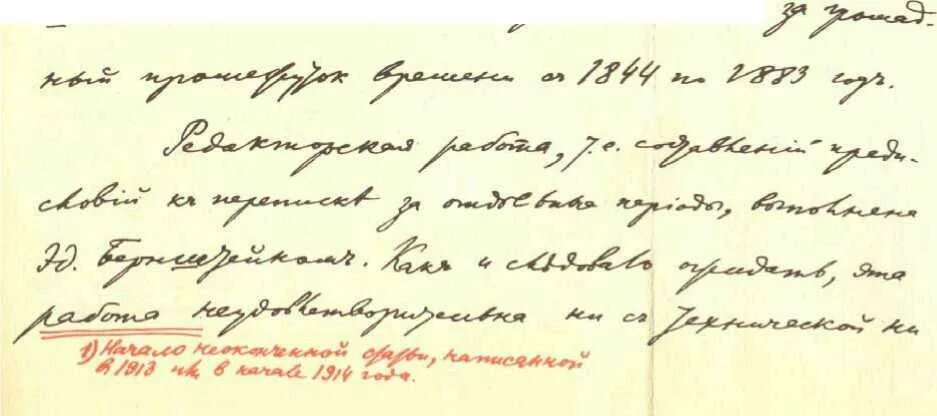 за громад-
ный промежуток времени съ 1844 по 1883 годъ.
Редакторская работа, т. е. составленiй преди-
словiй къ перепискѣ за отдѣльные перiоды, выполнена
Эд. Бернштейномъ. Какъ и слѣдовало ожидать, эта
работа неудовлетворительна ни съ технической ни
1) Начало неоконченной статьи, написанной
в 1913 или в начале 1914 года.